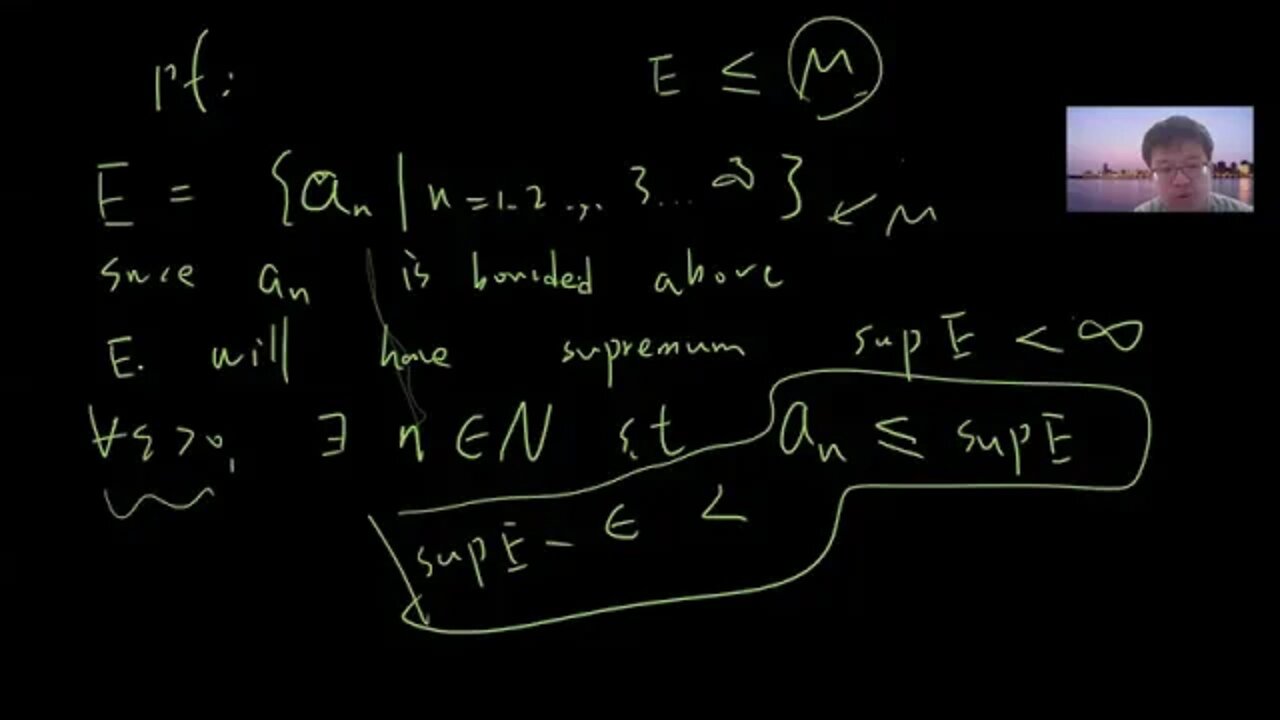 pf: E ≤ M
E = {aₙ | n=1.2.., 3... ∞} ← M
since aₙ is bounded above
E. will have supremum sup E < ∞
∀ε>0, ∃ n ∈ N s.t aₙ ≤ sup E
sup E - ϵ <